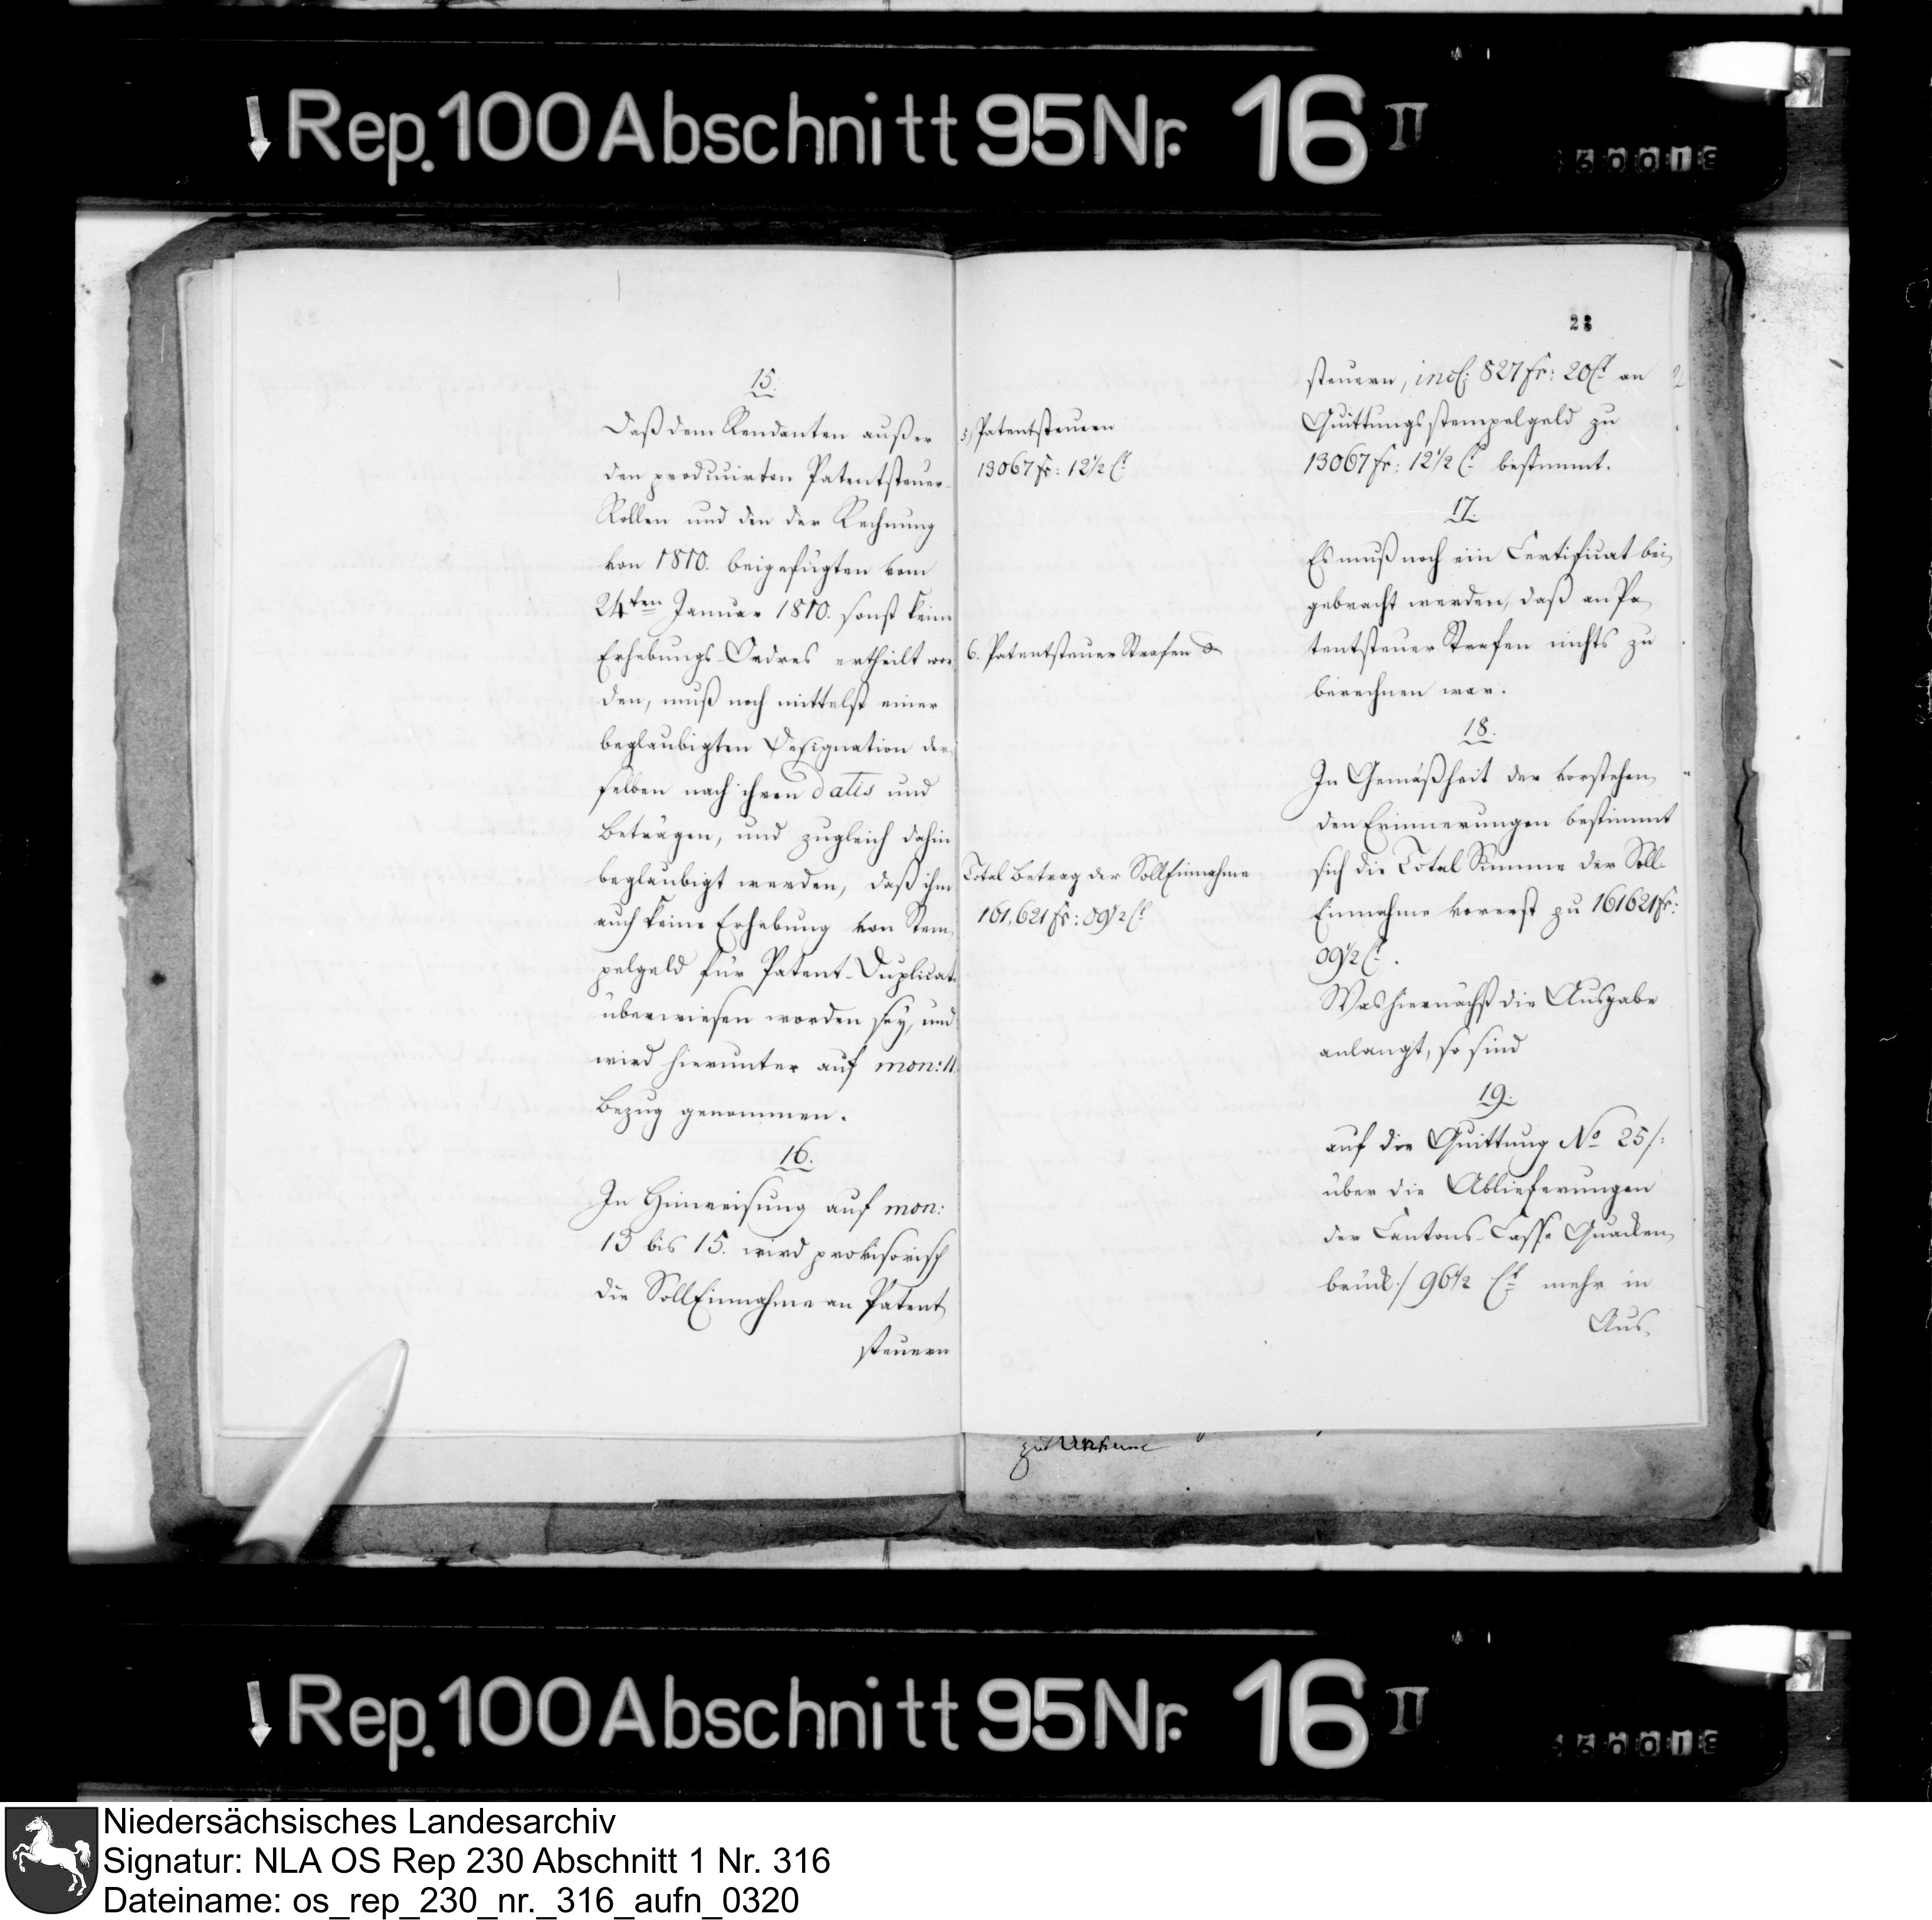 Rep. 100 Abschnitt 95 Nr. 16 II
15.
Daß dem Rendanten außer
den producirten Patentsteuer-
Rollen und den der Rechnung
von 1810. beigefügten vom
24ten Januar 1810. sonst keine
Erhebungs-Ordres ertheilt wor
den, muß noch mittelst einer
beglaubigten Designation der
selben nach ihren datis und
Beträgen, und zugleich dahin
beglaubigt werden, daß ihm
auch keine Erhebung von Stem,
pelgeld für Patent-Duplicate
überwiesen worden sey, und
wird hierunter auf mon: 11.
Bezug genommen.
16.
In Hinweisung auf mon:
13 bis 15. wird provisorisch
die SollEinnahme an Patent,
steuern
28
5) Patentsteuern
13067 fr: 12 1/2 Ct
6. Patentsteuer Strafen
Total Betrag der SollEinnahme
161,621 fr: 09 1/2 Ct
steuern, incl: 827 fr: 20 Ct an
Quittungsstempelgeld zu
13067 fr: 12 1/2 Ct bestimmt.
17.
Es muß noch ein Certificat bei,
gebracht werden, daß an Pa,
tentsteuer Strafen nichts zu
berechnen war.
18.
In Gemäßheit der vorstehen,
den Erinnerungen bestimmt
sich die Total Summe der Soll-
Einnahme vorerst zu 161621 fr:
09 1/2 Ct.
Was hiernächst die Ausgabe
anlangt, so sind
19.
auf die Quittung No 25 /:
über die Ablieferungen
der Cantons-Casse Quacken,
brück :/ 96 1/2 Ct mehr in
Aus,
Rep. 100 Abschnitt 95 Nr. 16 II
Niedersächsisches Landesarchiv
Signatur: NLA OS Rep 230 Abschnitt 1 Nr. 316
Dateiname: os_rep_230_nr._316_aufn_0320